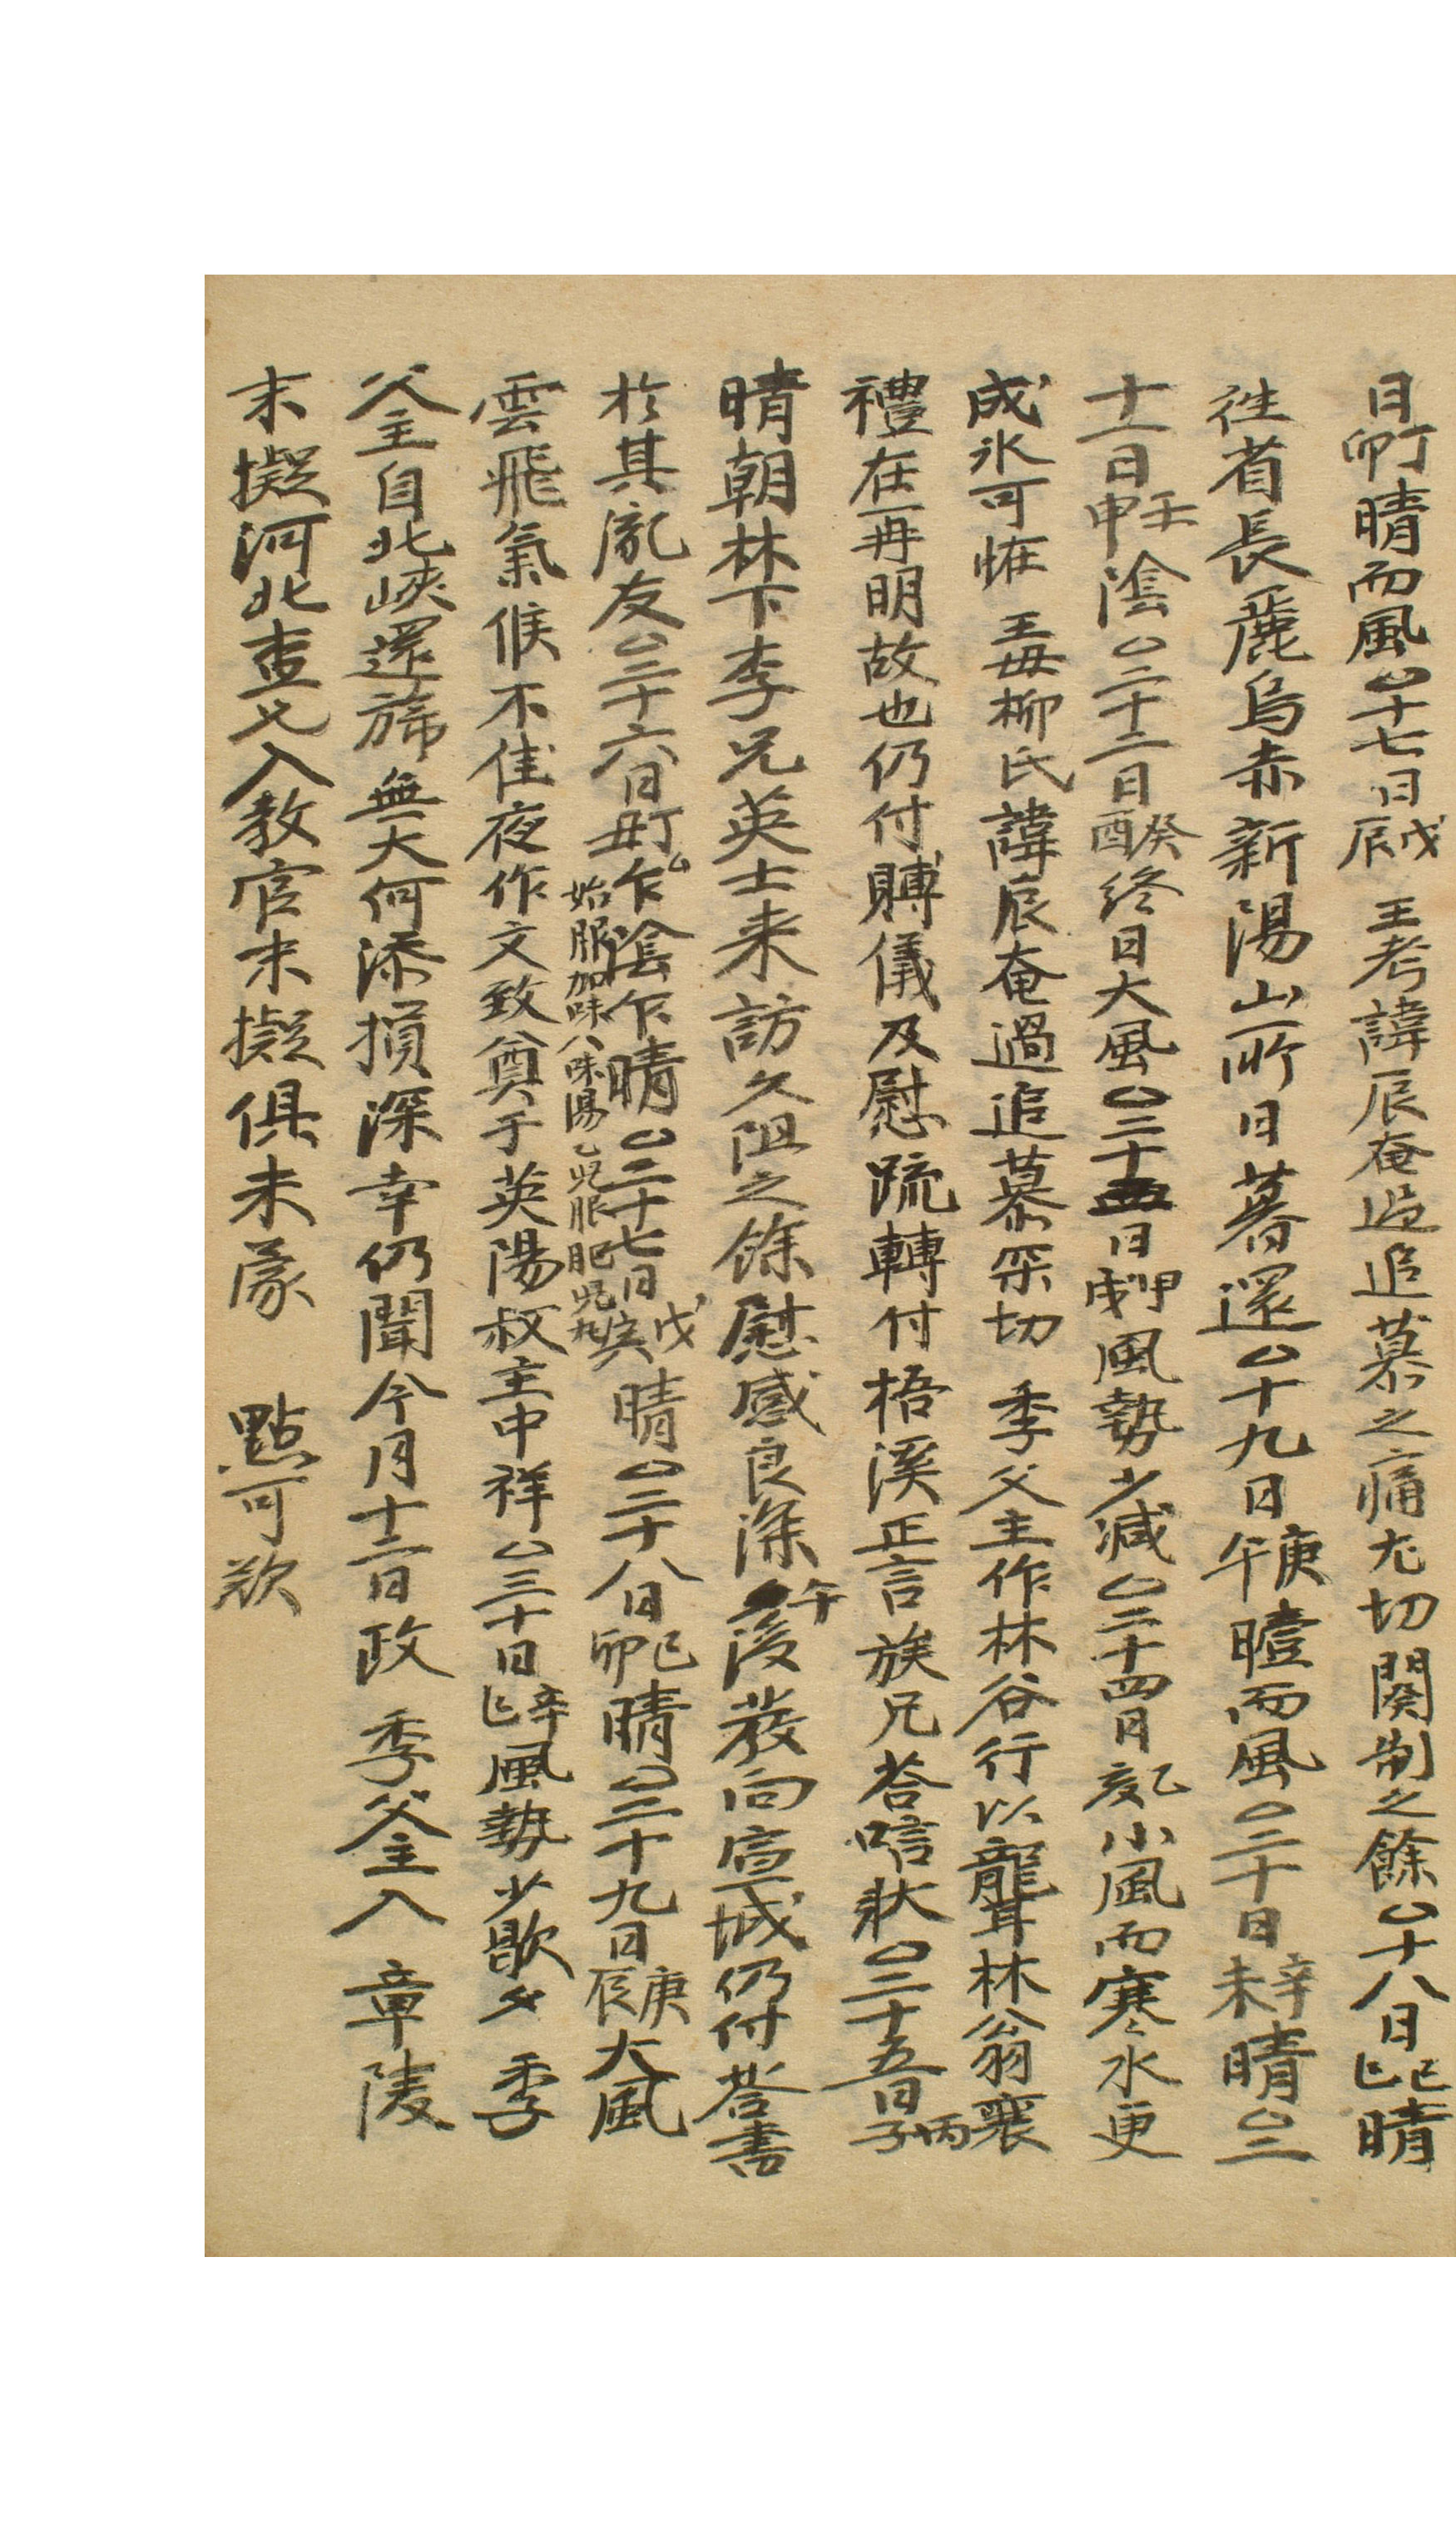 日丁卯晴而風○十七日戊辰 王考諱辰奄過追慕之痛尤切関制之餘○十八日己巳晴
往省長麗烏赤新陽山所日暮還○十九日庚午曀而風○二十日辛未晴○二
十一日壬申陰○二十二日癸酉終日大風○二十三日甲戌風勢少減○二十四日乙亥小風而寒水更
成氷可恠 王母柳氏諱辰奄過追慕采切 季父主作林谷行以龍茸林翁襄
禮在再明故也仍付賻儀及慰疏轉付梧溪正言族兄答唁狀○二十五日丙子
晴朝林下李兄英士来訪久阻之餘慰感良深午後發向宣城仍付答書
於其胤友○二十六日丁丑乍陰乍晴○二十七日戊寅晴○二十八日己卯晴○二十九日庚辰大風
始服加味八味湯
雲飛氣候不佳夜作文致奠于英陽叔主中祥○三十日辛巳風勢少歇夕 季
父主自北峽還旆無大何添損深幸仍聞今月十二日政 季父主入 章陵
末擬河北查兄入教官末擬俱未蒙 點可歎